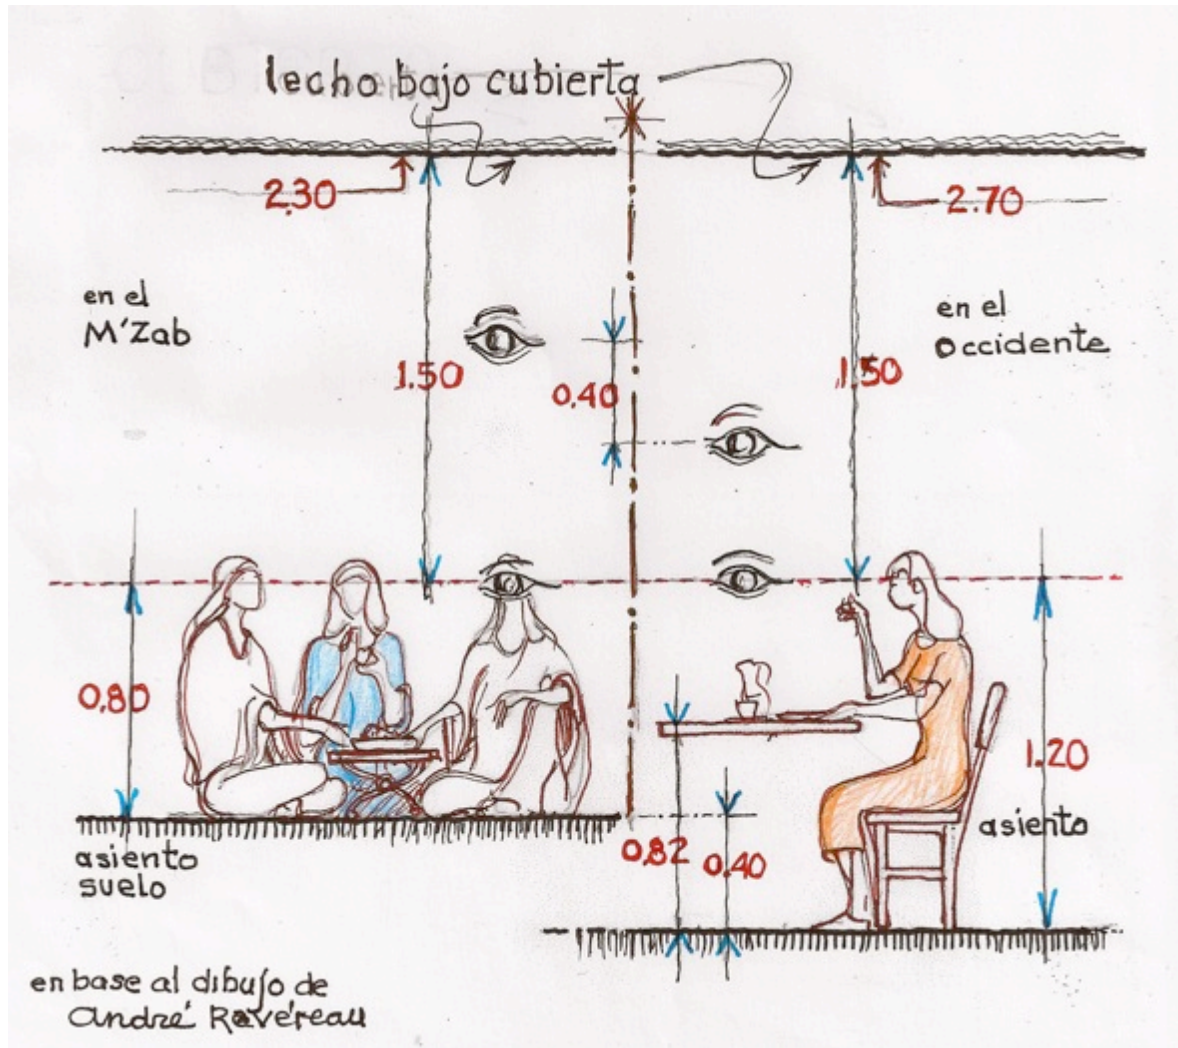 lecho bajo cubierta
2.30
2.70
en el
M'Zab
en el
Occidente
1.50
0.40
1.50
0.80
1.20
asiento
suelo
0.82
0.40
asiento
en base al dibujo de
André Ravéreau